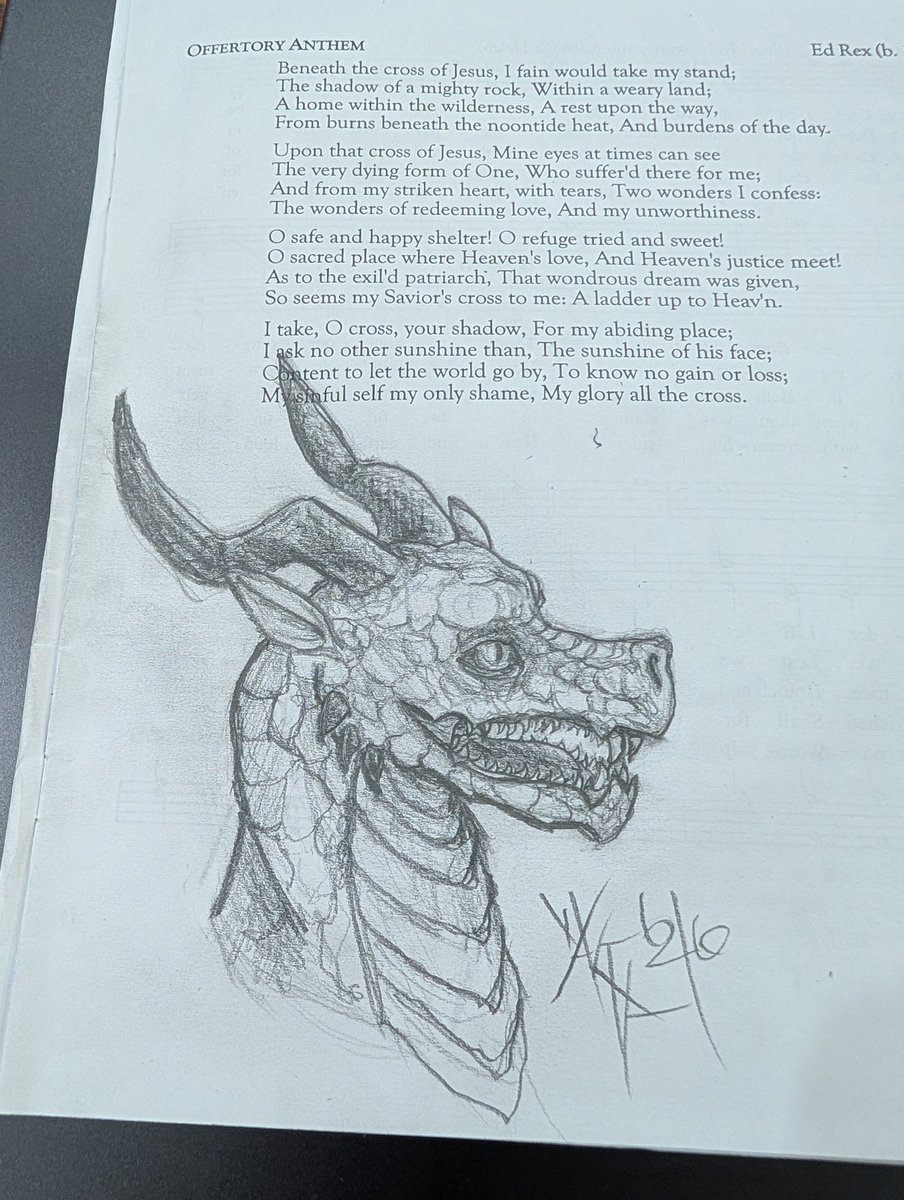 OFFERTORY ANTHEM
Ed Rex (b.
Beneath the cross of Jesus, I fain would take my stand;
The shadow of a mighty rock, Within a weary land;
A home within the wilderness, A rest upon the way,
From burns beneath the noontide heat, And burdens of the day.
Upon that cross of Jesus, Mine eyes at times can see
The very dying form of One, Who suffer'd there for me;
And from my striken heart, with tears, Two wonders I confess:
The wonders of redeeming love, And my unworthiness.
O safe and happy shelter! O refuge tried and sweet!
O sacred place where Heaven's love, And Heaven's justice meet!
As to the exil'd patriarch, That wondrous dream was given,
So seems my Savior's cross to me: A ladder up to Heav'n.
I take, O cross, your shadow, For my abiding place;
I ask no other sunshine than, The sunshine of his face;
Content to let the world go by, To know no gain or loss;
My sinful self my only shame, My glory all the cross.